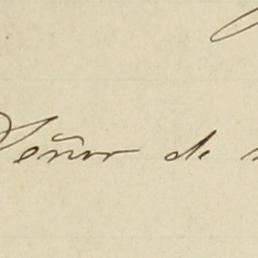 Señor de